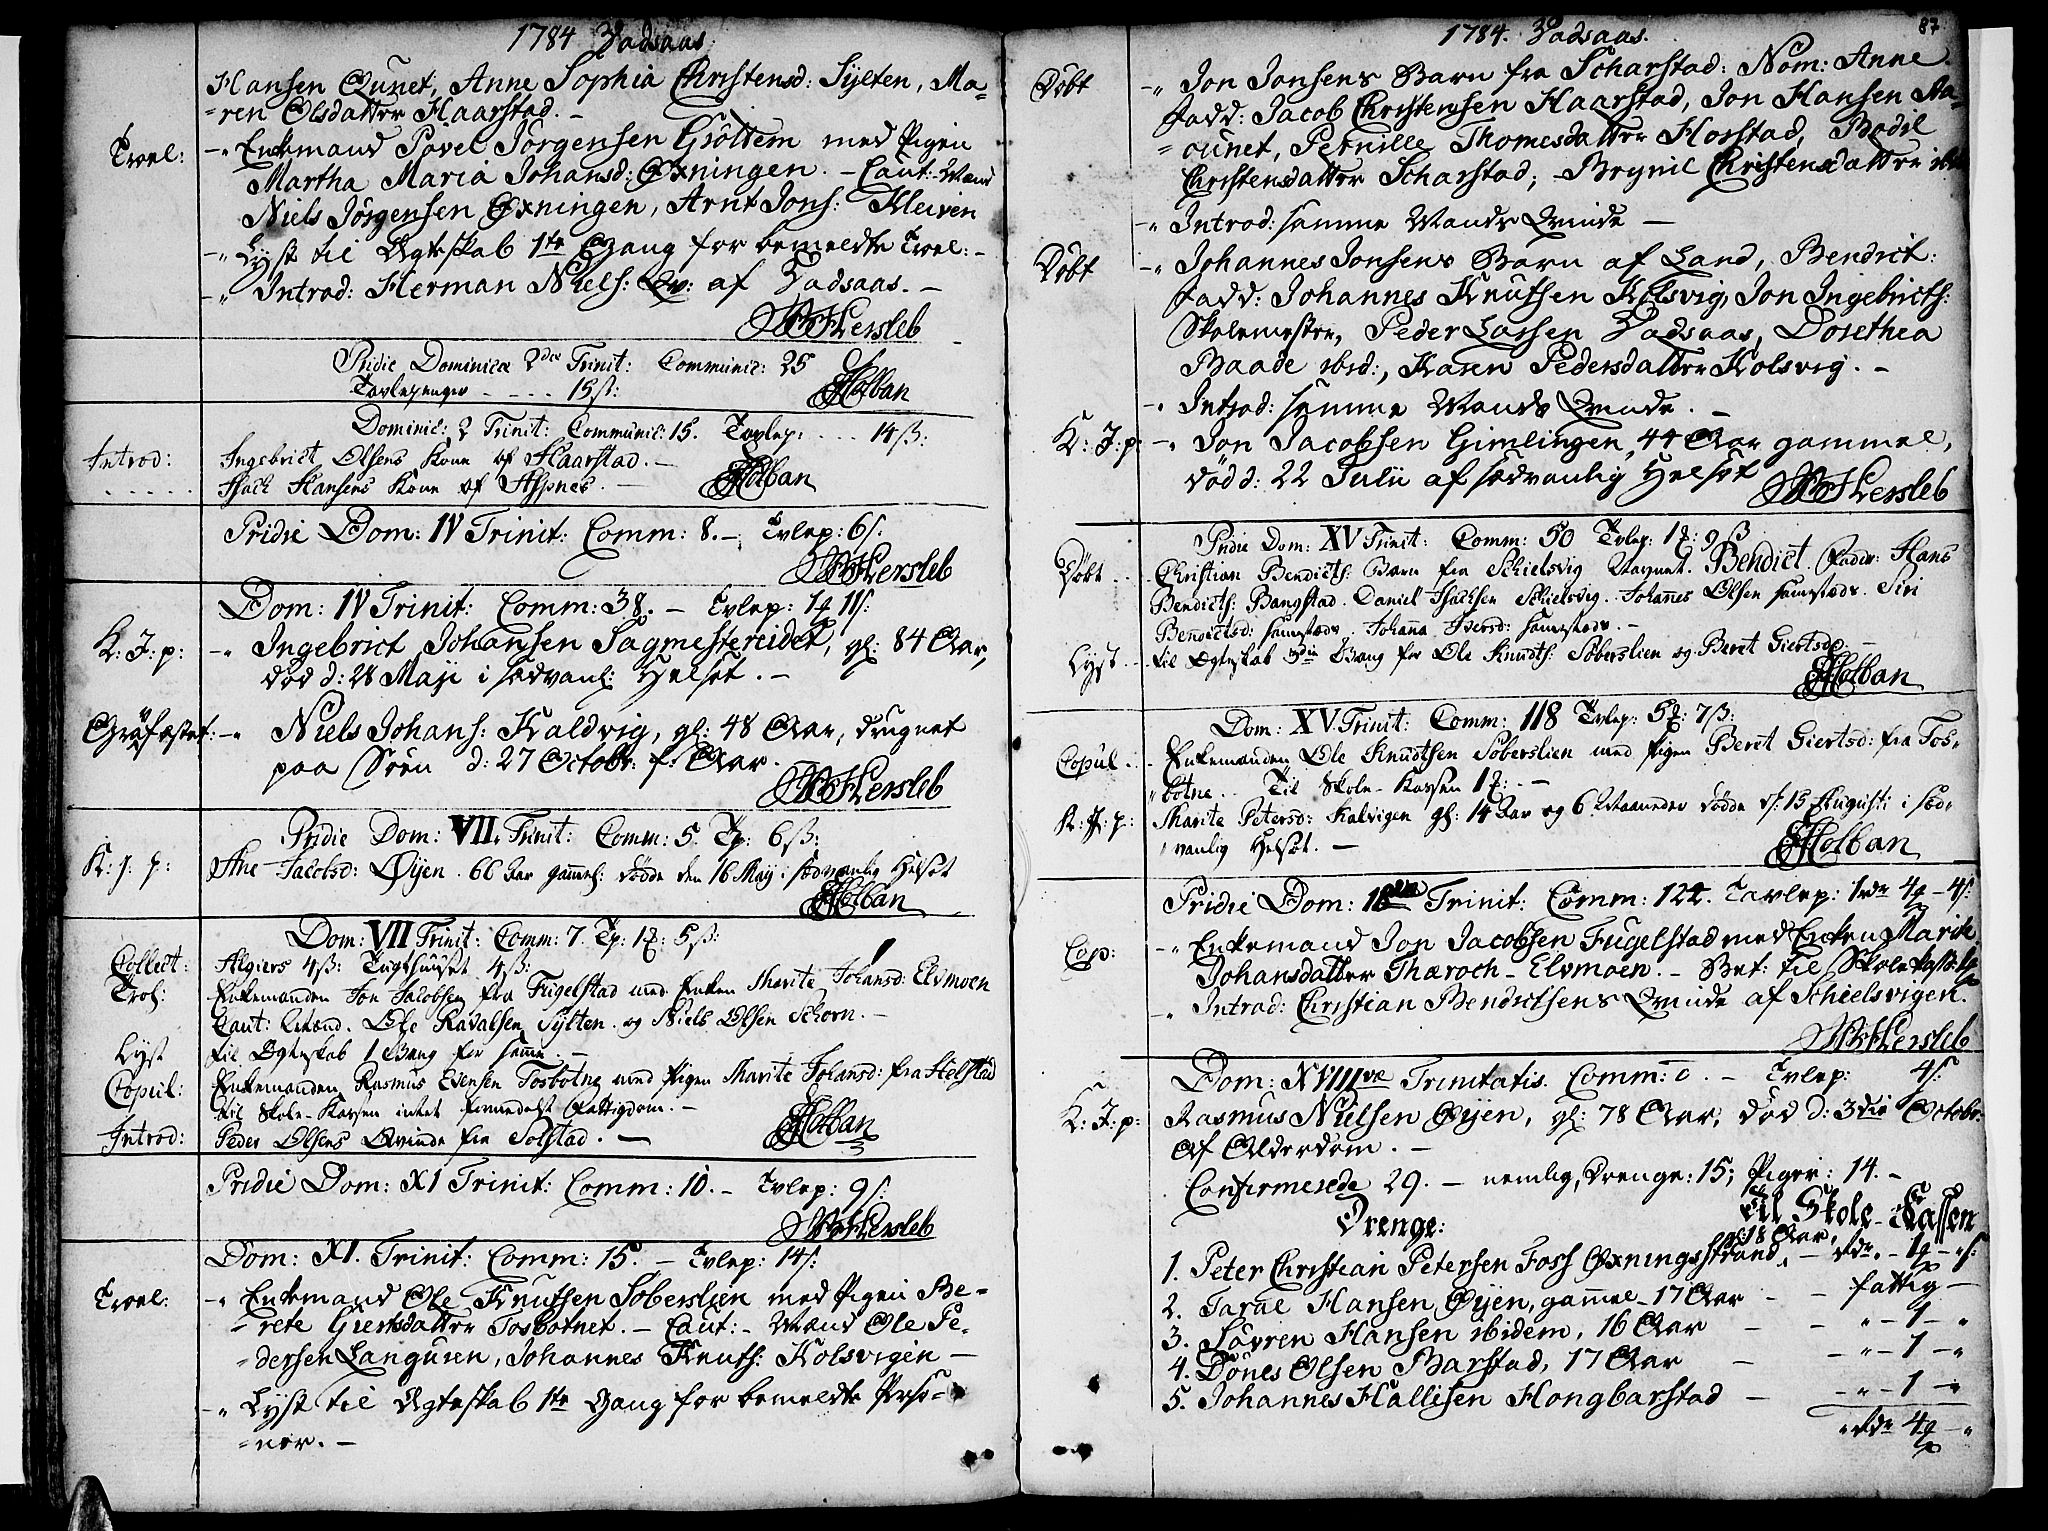 1784 Vadsaas
Hansen Qunet, Anne Sophia Christensd: Sylten, Ma-
-ren Olsdatter Haarstad. -
Trol: -" Enkemand Povel Jörgensen Gröttem med Pigen
Martha Maria Johansd: Øxningen. - Caut: Mænd
Niels Jörgensen Øxningen, Arnt Jons: Kleiven
-" Lyst til Ægteskab 1te Gang for bemeldte Trol: -
-" Introd: Herman Niels: Qv: af Vadsaas. -
Hersleb
Pridie Dominica 2den Trinit: Communic: 25
Tavlepenger - - - - 15ß:
Holban
Dominic: 2 Trinit: Communic: 15. Tavlep: . . . 14ß:
Introd: Ingebrict Olsens Kone af Haarstad. -
. . . . . Isach Hansens Kone af Aspnes. -
Holban
Pridie Dom: IV Trinit: Comm: 8. - Tvlep: 6ß:
Hersleb
Dom: IV Trinit: Comm: 38. - Tvlep: 1 11ß:
K: J: p: -" Ingebrict Johansen Sagmestereidet, gl: 84 Aar,
död d: 28 Maji i sædvanl: Helsot. -
Gravfæstet: -" Niels Johans: Kaldvig, gl: 48 Aar, drugnet
paa Söen d: 27 Octobr: f: Aar.
Hersleb
Pridie Dom: VII. Trinit: Comm: 5. Tp: 6ß:
K. J. p: Ane Jacobsd: Øijen. 66 Aar gammel: dödde den 16 Maij i sædvanlig Helsot
Holban
Dom: VII Trinit: Comm: 7. Tp: 1: 5ß:
Collect: Algiers 4ß: Tugthuuset 4ß:
Trol: Enkemanden Jon Jacobsen fra Fugelstad med Enken Marite Johansd: Elvmoen
Caut: Mænd. Ole Ravalsen Sylten og Niels Olsen Schorn. -
Lyst til Ægteskab 1 Gang for samme. -
Copul: Enkemanden Rasmus Evensen Tosbotne med Pigen Marite Johansd: fra Helstad
til Skole-Kassen intet formedelst Fattigdom. -
Introd: Peder Olsens Qvinde fra Solstad. -
Holban
Pridie Dom: XI Trinit: Comm: 10. - Tvlep: 9ß:
Hersleb
Dom: XI. Trinit: Comm: 15. - Tvlep: 14ß:
Trol: -" Enkemand Ole Knutsen Söberslien med Pigen Be-
-rete Giertsdatter Tosbotnet. - Caut: - Mænd Ole Pe-
-dersen Langusen, Johannes Knuts: Kolsvigen -
-" Lyst til Ægteskab 1te Gang for bemeldte Perso-
-ner. -
1784. Vadsaas.
87
Döbt -" Jon Jonsens Barn fra Scharstad: Nom: Anne.
Fadd: Jacob Christensen Haarstad, Jon Hansen Aa-
-ounet, Pernille Thomesdatter Horstad, Bodil
Christensdatter Scharstad; Brynil Christensdatter ibid
-" Introd: samme Mands Qvinde -
Döbt -" Johannes Jonsens Barn af Land, Bendict:
Fadd: Johannes Knutsen Kolsvig, Jon Ingebricts:
Skolemester, Peder Larsen Vadsaas, Dorethea
Baade ibid:, Karen Pedersdatter Kolsvig. -
-" Introd: samme Mands Qvinde. -
K: J: p: -" Jon Jacobsen Gimlingen, 44 Aar gammel,
död d: 22 Julii af sædvanlig Helsot
Hersleb
Pridie Dom: XV Trinit: Comm: 50 Tvlep: 1: 9ß
Döbt . . Christian Bendicts: Barn fra Schielsvig Navnet. Bendict. Fadr: Hans
Bendicts: Bangstad. Daniel Isachsen Schielsvig. Johannes Olsen sammesteds. Siri
Bendictsd: sammesteds. Johanna Iversd: sammesteds. -
Lyst . . til Ægteskab 3die Gang for Ole Knudts: Söberslien og Beret Giertsd: -
Holban
Dom: XV. Trinit: Comm: 118 Tvlep: 5: 7ß:
Copul . . Enkemanden Ole Knudtsen Söberslien med Pigen Beret Giertsd: fra Tos-
botne. . Til Skole-Kassen 1: -
K: J: p: Marite Petersd: Kalvigen gl: 14 Aar og 6 Maaneder dödde d: 15 Augusti i sæd-
vanlig Helsot. -
Holban
Pridie Dom: 18va Trinit: Comm: 122. Tavlep: 1rdr 4 - 4ß.
Cop: -" Enkemand Jon Jacobsen Fugelstad med Enken Marite
Johansdatter Thæroch-Elvmoen. - Bet: til Skolekassen
-" Introd: Christian Bendictsens Qvinde af Schielsvigen.
Hersleb
Dom: XVIIIvæ Trinitatis. Comm: 0. - Tvlep: 4ß:
K: J: p: Rasmus Nielsen Øijen, gl: 78 Aar, död d: 3die Octobr:
af Alderdom. -
Confirmerede 29. - nemlig, Drenge: 15; Piger: 14. -
Drenge: Til Skole-Kassen
1. Peter Christian Petersen Foss Øxningsstrand, 18 Aar, - rdr. - 1 - " ß:
2. Tarne Hansen Øijen, gammel 17 Aar - - fattig -
3. Lavren Hansen ibidem, 16 Aar - - " - 1 - "
4. Dönes Olsen Barstad, 17 Aar - - " - 1 - "
5. Johannes Hallesen Hongbarstad - - " - 1 - "
" Rdr 4 - "